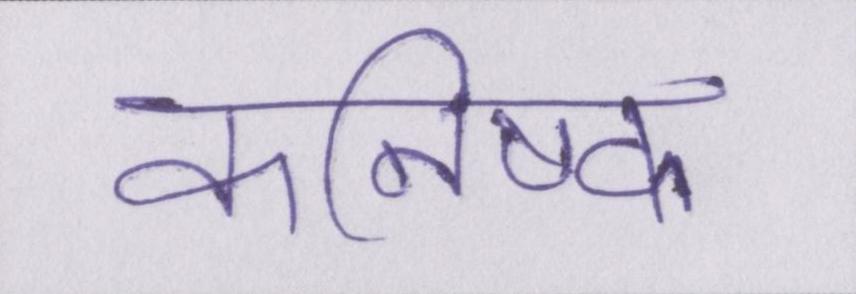 कनिष्क